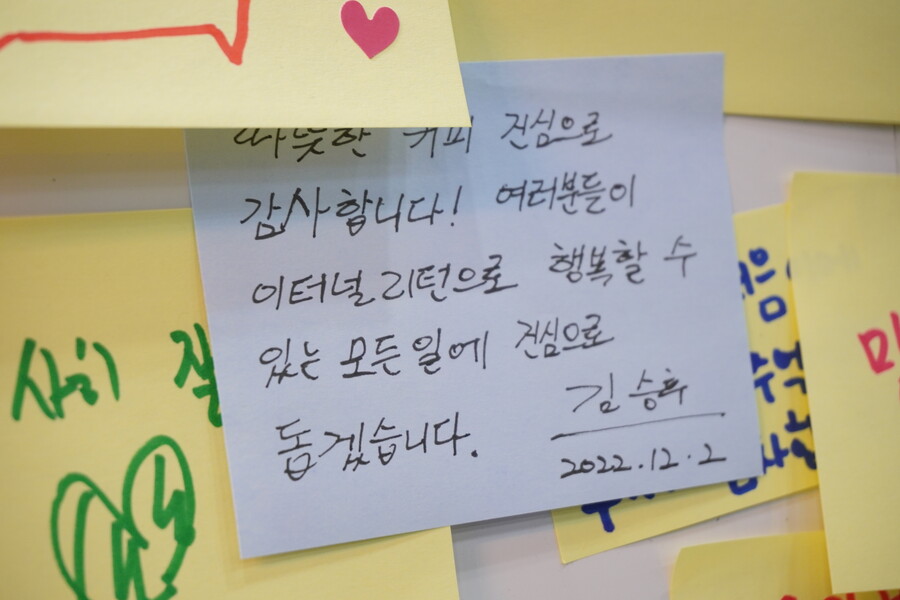 따뜻한 커피 진심으로
감사합니다! 여러분들이
이터널리턴으로 행복할 수
있는 모든 일에 진심으로
돕겠습니다.
김승후
2022.12.2
사히